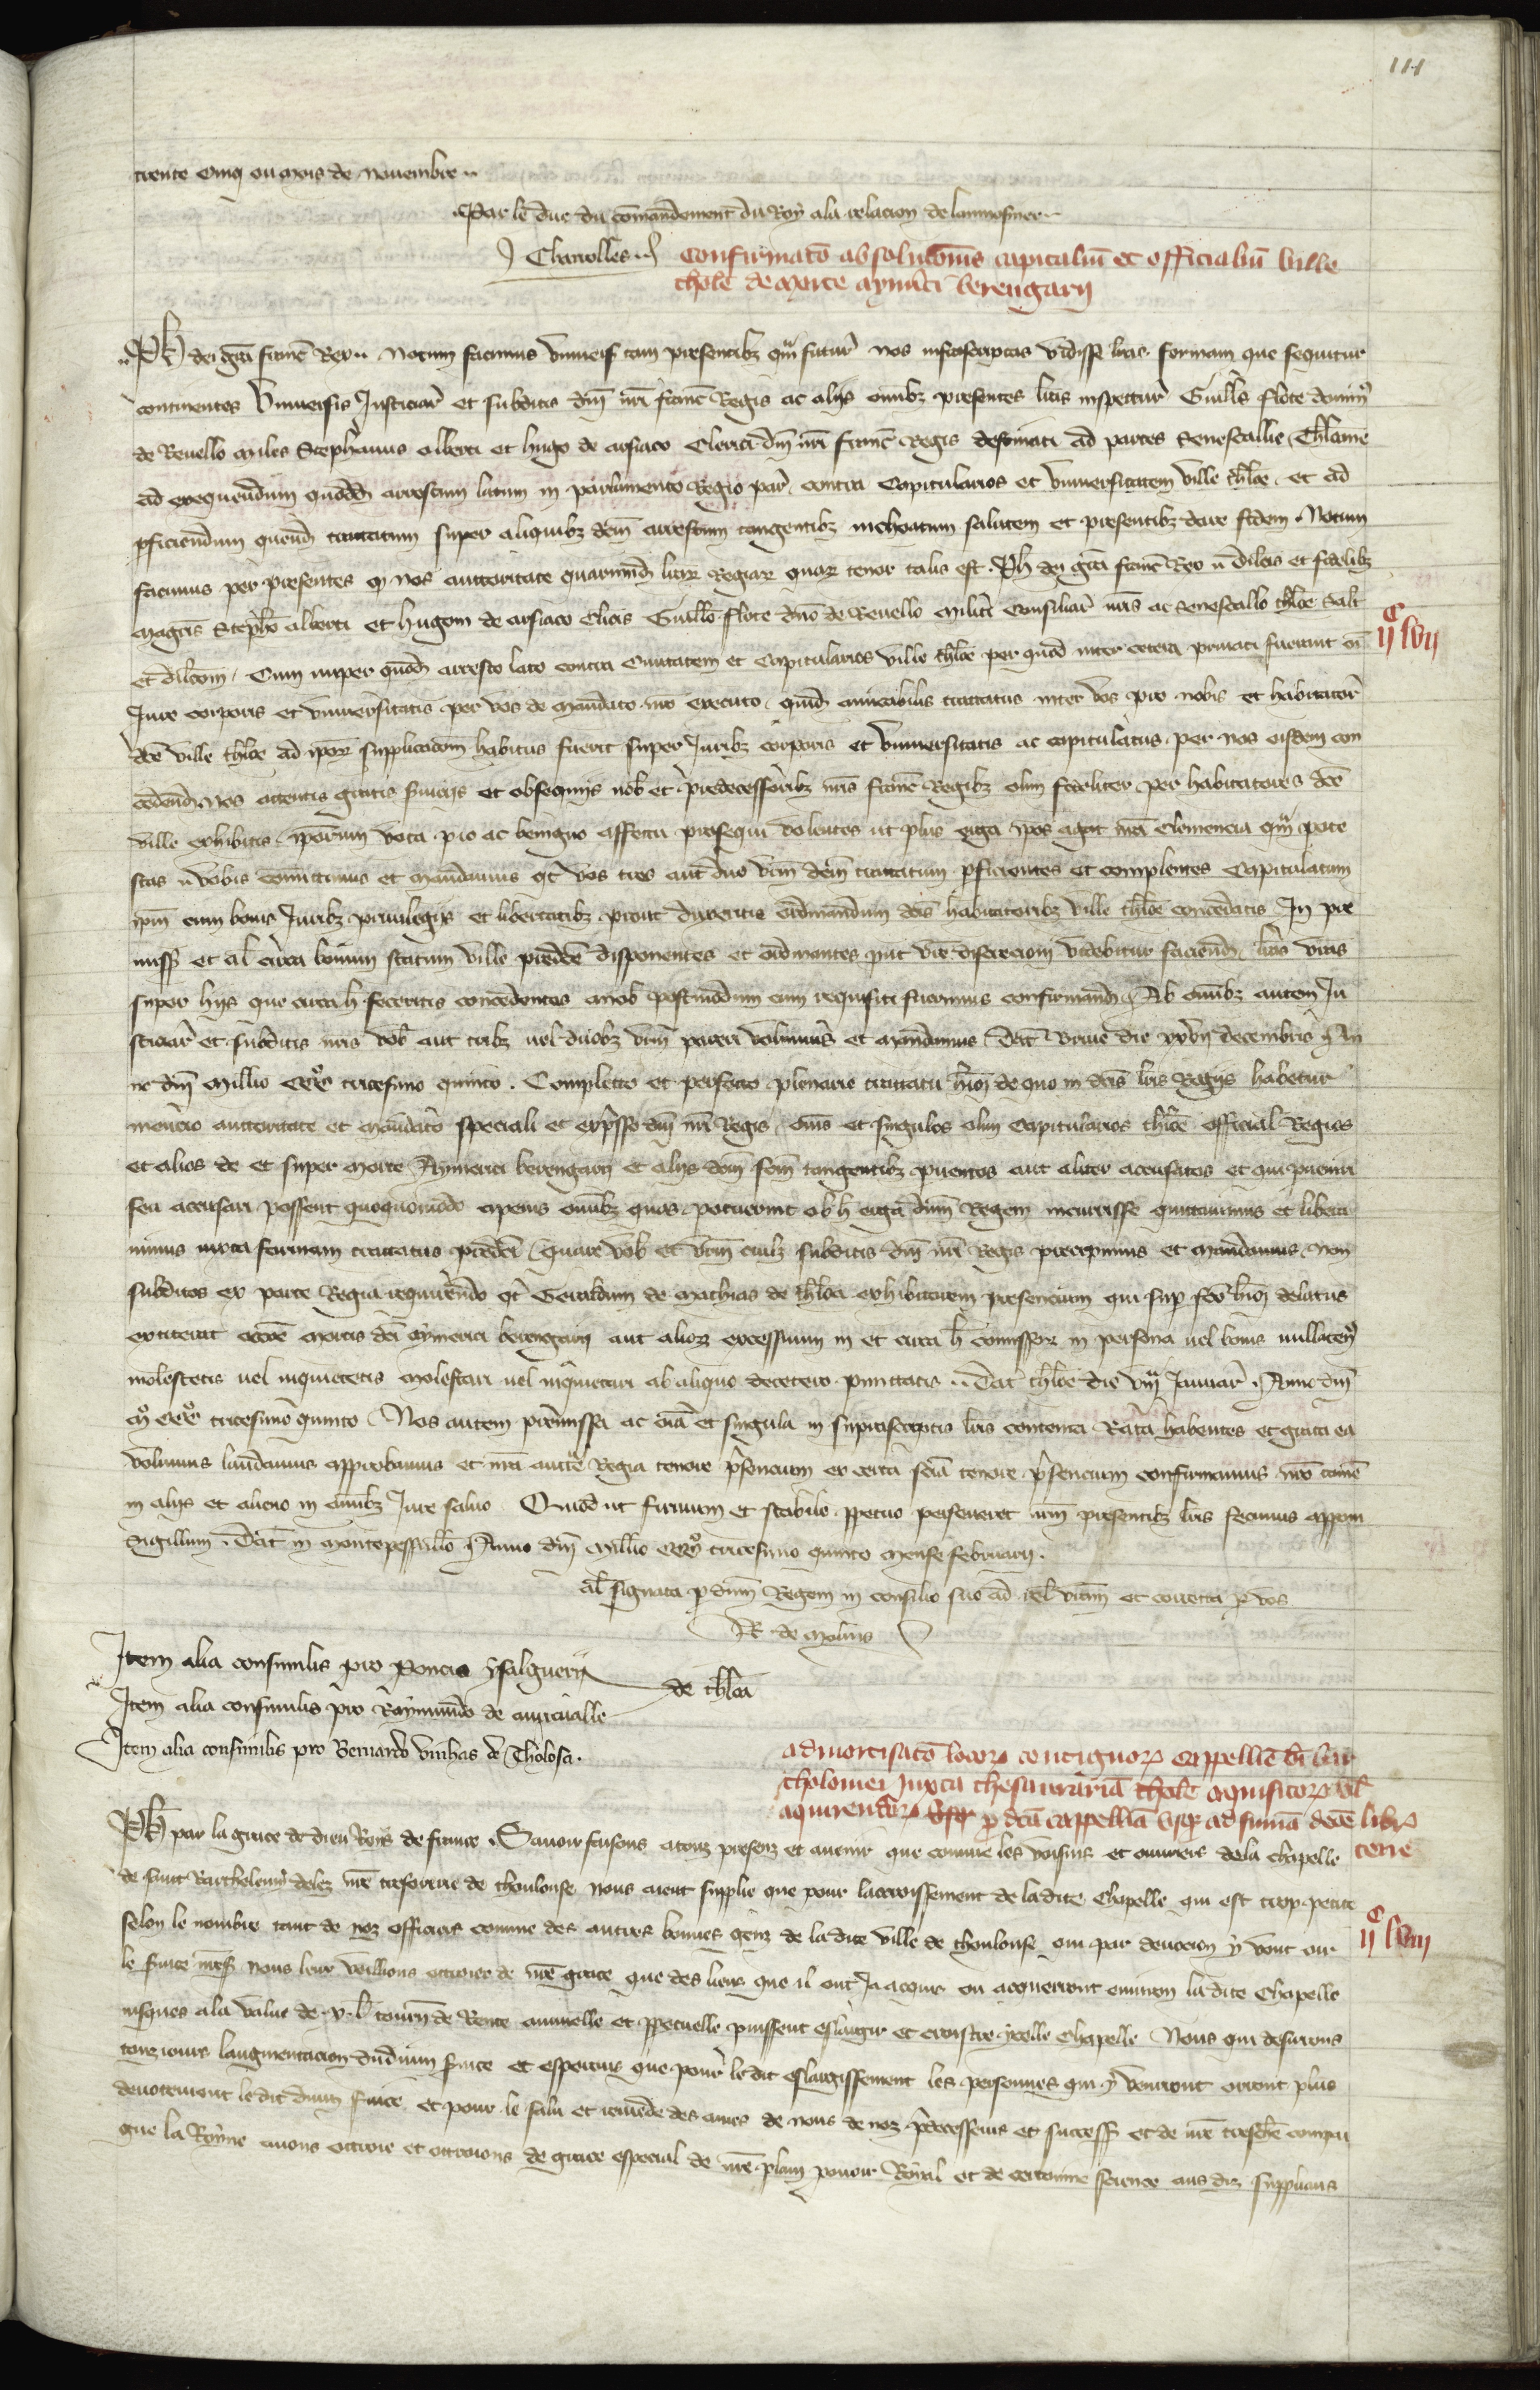 111
trente cinq ou mois de novembre
Par le duc du comandement du Roy a la relacion de laumosnier
J Charrolles
Confirmato absolutionis capitaliu et officialiu ville
thole de morte aymerici berengarij
Ph dei gra franc Rex Notum facimus univers tam presentibz qm futur nos infrascriptas vidisse lras formam que sequitur
continentes Universis Justiciar et subditis dni nri franc Regis ac alijs omibz presentes litas inspectur Guills flote domin
de Revello miles Stephanus alberti et hugo de arsiaco Clerici dni nri franc Regis destinati ad partes Senescallie Tholoane
ad exequendum quoddam arrestum latum in parlamento Regio par contra Capitularios et Universitatem ville thloe et ad
pficiendum quendam tractatum super aliquibz dcm arrestum tangentibz inchoatum salutem et presentibz dare fidem Notum
facimus per presentes q nos auctoritate quarumd lrar Regiar quar tenor talis est Ph dei gra franc Rex dilcis et fidelibz
magris Stepho alberti et hugoni de arsiaco clicis Guillo flote dno de Revello militi Consiliar nris ac Senescallo thloe salt
et dilcom Cum nuper quod arresto lato contra Civitatem et Capitularios ville thloe per quod inter cetera privati fuerunt oi
ijc lvij
Jure corporis et universitatis per vos de mandato nro executo quid amicabilis tractatus inter vos pro nobis et habitator
dce ville thloe ad ipor supplicacom habitus fuerit super Juribz corporis et Universitatis ac capitulatus per nos eisdem con
cedend Nos attentis gratis servicijs et obsequijs nob et predecessoribz nris franc Regibz olim fideliter per habitatores dce
ville exhibitis iporum vota pio ac benigno affectu prosequi volentes ut plus erga ipos agat nra clemencia qm pote
stas vobis comittimus et mandamus qt vos tres aut duo vrm dcm tractatum pficientes et complentes Capitulatum
ipm cum bonis Juribz privilegijs et libertatibz prout duxeritis ordinandum dcis habitatoribz ville thloe concedatis In pre
miss et al circa bonum statum ville predce disponentes et ordinantes put vre discrecioni videbitur faciend lras vras
super hijs que circa h feceritis concedentes a nob postmodum cum requisiti fuerimus confirmand Ab omibz autem Ju
sticiar et subditis nris vob aut tribz vel duobz vrm pareri volumus et mandamus Dat die xxvij decembris An
no dni Millio ccco tricesimo quinto Completo et perfecto plenarie tractatu hmoi de quo in dcis lris Regijs habetur
mencio auctoritate et mandato speciali et expresso dni nri Regis omes et singulos olim Capitularios thloe official Regios
et alios de et super morte Aymerici berengarij et alijs dcm fcm tangentibz pventos aut aliter accusatos et qui preveniri
seu accusari possent quoquomodo a penis omibz quas potuerint ob h erga dnm Regem incurrisse quittavimus et libera
vimus iuxta formam tractatus predci Quare vob et vrm cuilz subditis dni nri Regis precipimus et mandamus non
subditos ex parte Regia requirendo qt Geraldum de mathias de thloa exhibitorem presencium qui sup fco hmoi delatus
extiterat occone mortis dci aymerici berengarij aut alior excessuum in et circa h comissor in persona vel bonis nullaten
molestetis vel inquietetis molestari vel inquietari ab aliquo decetero pmittatis Dat thloe die viij Januar Anno dni
mo ccco tricesimo quinto Nos autem premissa ac oia et singula in suprascriptis lris contenta Rata habentes et grata ea
volumus laudamus approbamus et nra aucte Regia tenore psencium ex certa scia tenore psencium confirmamus nro tame
in alijs et alieno in omibz Jure salvo Quod ut firmum et stabile ppetuo perseveret nrm presentibz lris fecimus apponi
sigillum Dat in montepessullo Anno dni Millio ccco tricesimo quinto mense februarij
al signata p dnm Regem in consilio suo ad rel vram et correcta p vos
R de molins
Item alia consimilis pro Poncio ysalguerij
Item alia consimilis pro Raymundo de auricvalle
de thloa
Item alia consimilis pro Bernardo de Tholosa
admortisato locor contiguor cappellie bi bar
tholomei juxta thesaurariam thole aquisitor vel
aquirendor p dca cappellia usqr ad suma dece libr
terre
Ph par la grace de dieu Roys de france Savoir faisons a touz presenz et avenir que comme les voisins et ouvriers de la chapelle
de saint Barthelemy delez nre tresorerie de thoulouse nous aient supplie que pour lacroissement de ladite Chapelle qui est trop petite
selon le nombre tant de noz officiers comme des autres bonnes genz de ladite ville de thoulouse qui par devocion y vont oir
ijc lviij
le service nous leur voillions octroier de nre grace que des lieux que il ont Ja acquis ou acquerront environ ladite Chapelle
iusques a la value de x l tourn de Rente annuelle et ppetuelle puissent eslargir et croistre ycelle Chapelle Nous qui desirons
touzjours laugmentacion du divin service et esperons que pour ledit eslargissement les personnes qui y venront orront plus
devotement ledit divin service et pour le salu et remede des ames de nous de noz predecesseurs et success et de nre treschiere compai
gne la Royne avons octroie et octroions de grace especial de nre plain povoir Royal et de certaine science aus diz supplians